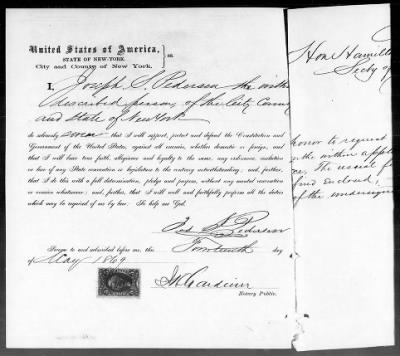 United States of America,
STATE OF NEW-YORK.
City and County of New York.
ss.
I, Joseph S. Pedersen the within
described person, of the City County
and State of New York
do solemnly swear that I will support, protect and defend the Constitution and
Government of the United States, against all enemies, whether domestic or foreign, and
that I will bear true faith, allegiance and loyalty to the same, any ordinance, resolution
or law of any State convention or legislature to the contrary notwithstanding; and further,
that I do this with a full determination, pledge and purpose, without any mental reservation
or evasion whatsoever; and further, that I will well and faithfully perform all the duties
which may be required of me by law: So help me God.
S. Pedersen
Sworn to and subscribed before me, this Fourteenth day
of May 1869
Gardiner
Notary Public.
Hon Hamilt
Secty of
honor to request
the within appl
The usual
find enclosed
of the undersign